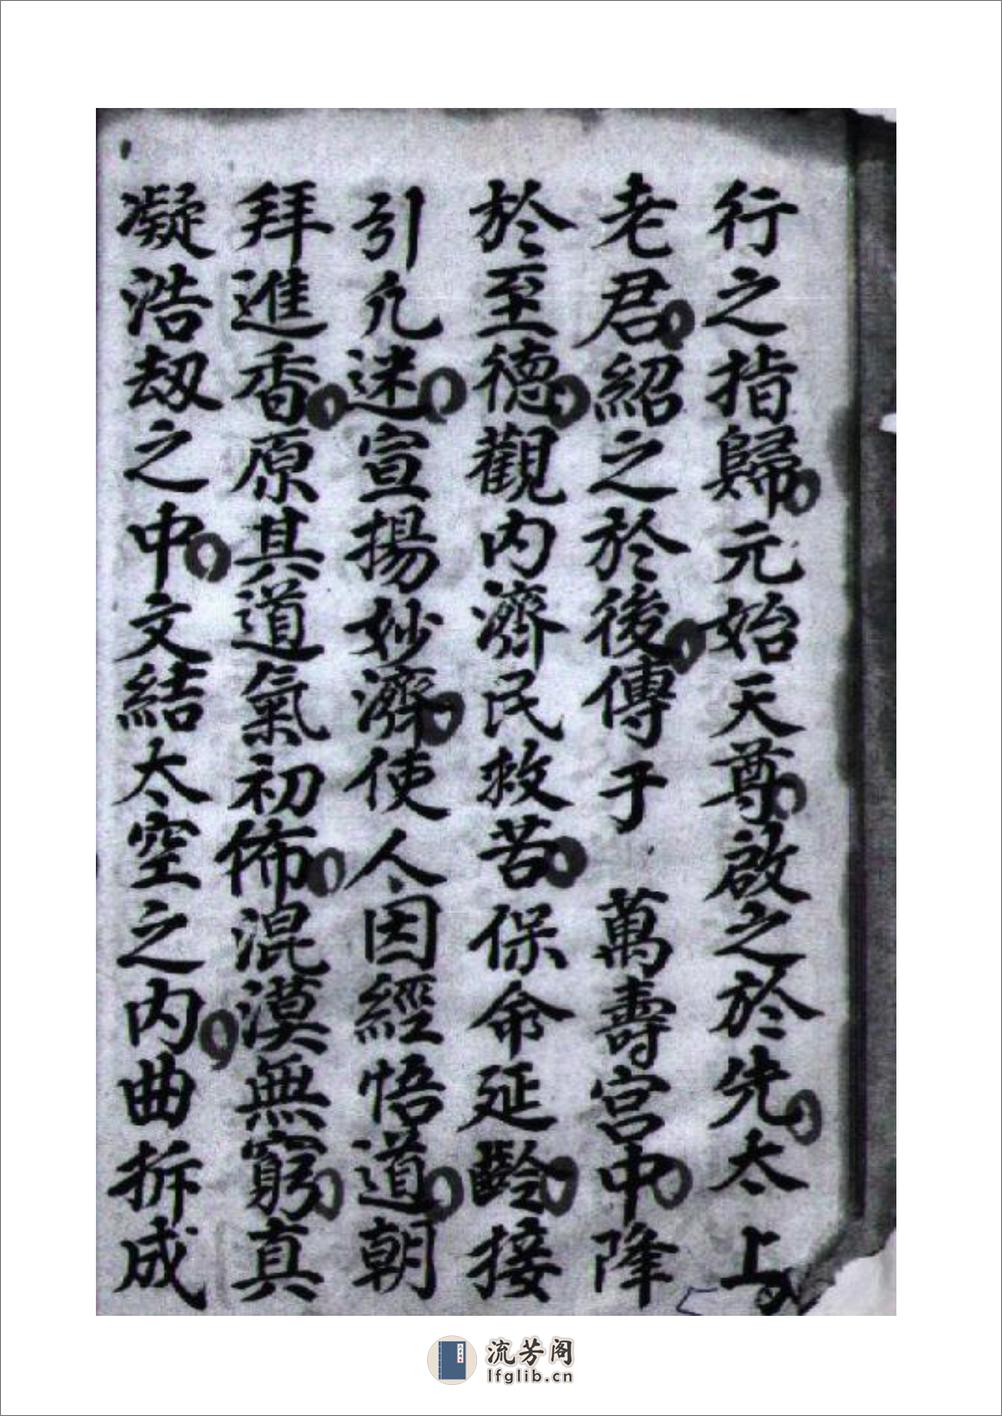 行之指歸元始天尊啟之於先太上
老君紹之於後傳于 萬壽宮中降
於至德觀内濟民救苦保命延齡接
引凢迷宣揚妙濟使人因經悟道朝
拜進香原其道氣初佈混漠無窮真
凝浩刼之中文結太空之内曲拆成
流芳阁
lfglib.cn